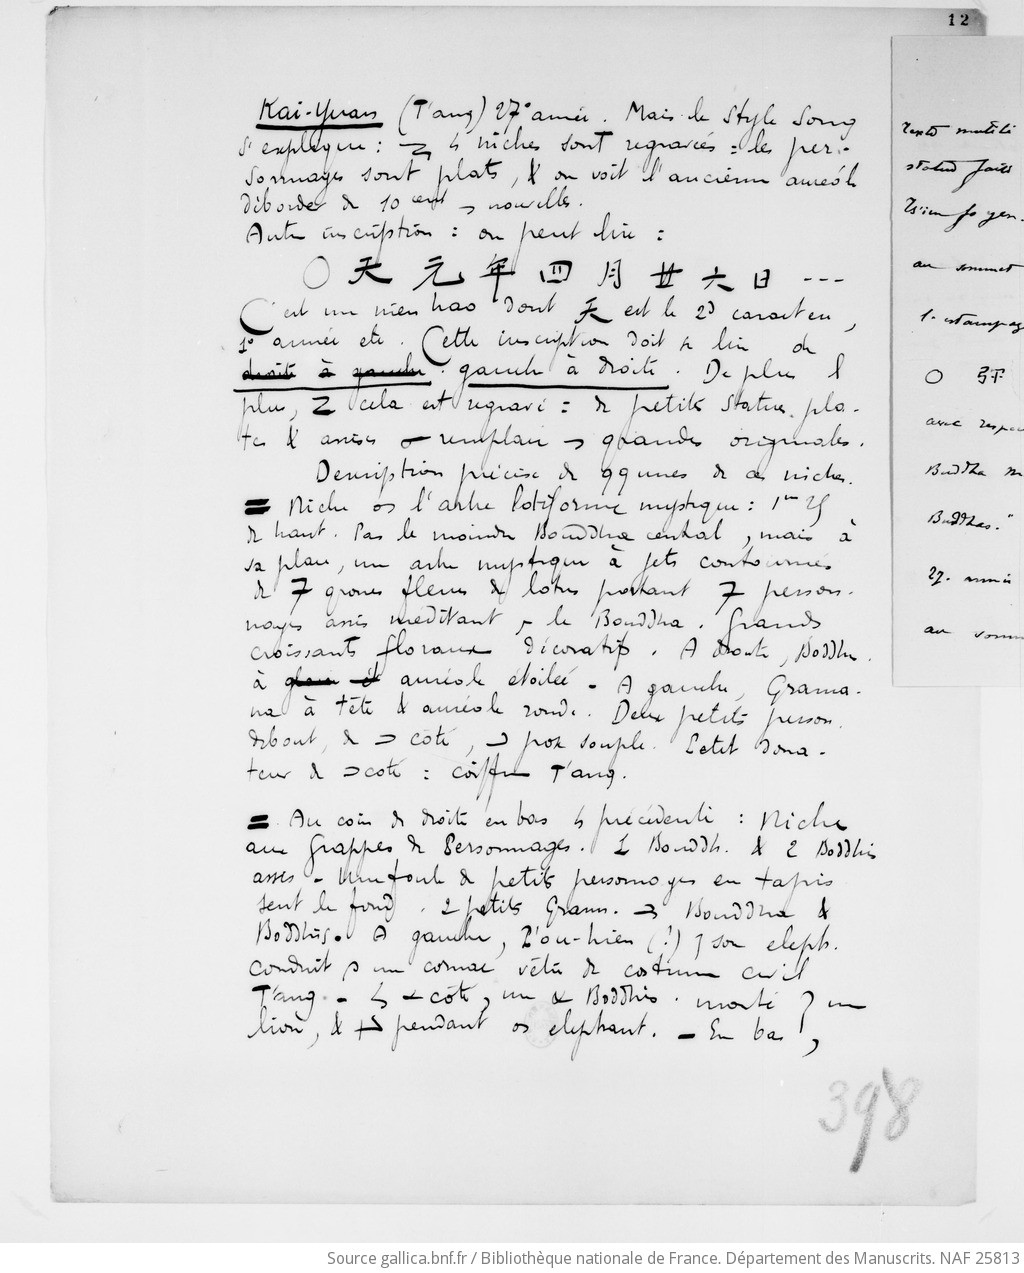 12
Kai-Yuan (T'ang) 27e année. Mais le Style Song
s'explique : niches sont regravées : les per-
sonnages sont plats, & on voit l'ancienne auréole
déborder de 10 cent nouvelles.
Autre inscription : on peut lire :
○ 天 元 年 四 月 廿 六 日 ---
C'est un nien hao dont 天 est le 2d caractère,
1e année etc. Cette inscription doit se lire de
droite à gauche. gauche à droite. De plus
plus, cela est regravé : de petits statues pla-
tes & assises remplace grandes originales.
Description précise de qques de ces niches.
= Niche l'arbre lotiforme mystique : 1m 25
de haut. Pas le moindre Bouddha central, mais à
sa place, un arbre mystique à jets contournés
de 7 grosses fleurs de lotus portant 7 person-
nages assis méditant, le Bouddha. Grands
croissants floraux décoratifs. A droite, Boddhi.
à auréole étoilée - A gauche, Grama-
na à tête & auréole ronde. Deux petits person.
debout, de côté, pose souple. Petit dona-
teur de côté : coiffure T'ang.
= Au coin de droite en bas précédente : Niche
aux Grappes de Personnages. 1 Bouddh. & 2 Boddhis
assis - Une foule de petits personnages en tapis
sur le fond. 2 petits Gram. Bouddha &
Boddhis. A gauche, P'ou-hien (!) son eleph.
conduit un cornac vêtu de costume civil
T'ang. - côté, un Boddhis. monté un
lion, & pendant elephant. - En bas,
398
Texte mutilé
statues faites
Ts'ien fo yen.
au sommet
1. estampag
○ 
avec respec
Buddha
Buddhas."
27. année
au somm
Source gallica.bnf.fr / Bibliothèque nationale de France. Département des Manuscrits. NAF 25813